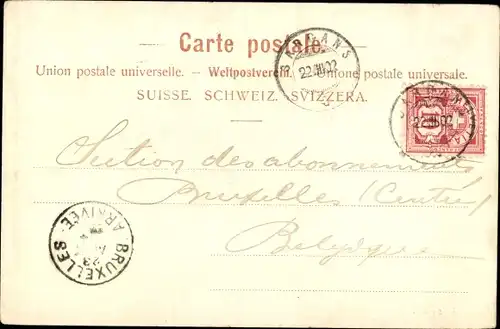 Carte postale.
SARGANS
22.III.02
Union postale universelle. – Weltpostverein. – Unione postale universale.
SUISSE. SCHWEIZ. SVIZZERA.
SARGANS
22.III.02
10
Section des abonnements
Bruxelles (Centre)
Belgique
BRUXELLES
ARRIVÉE
23